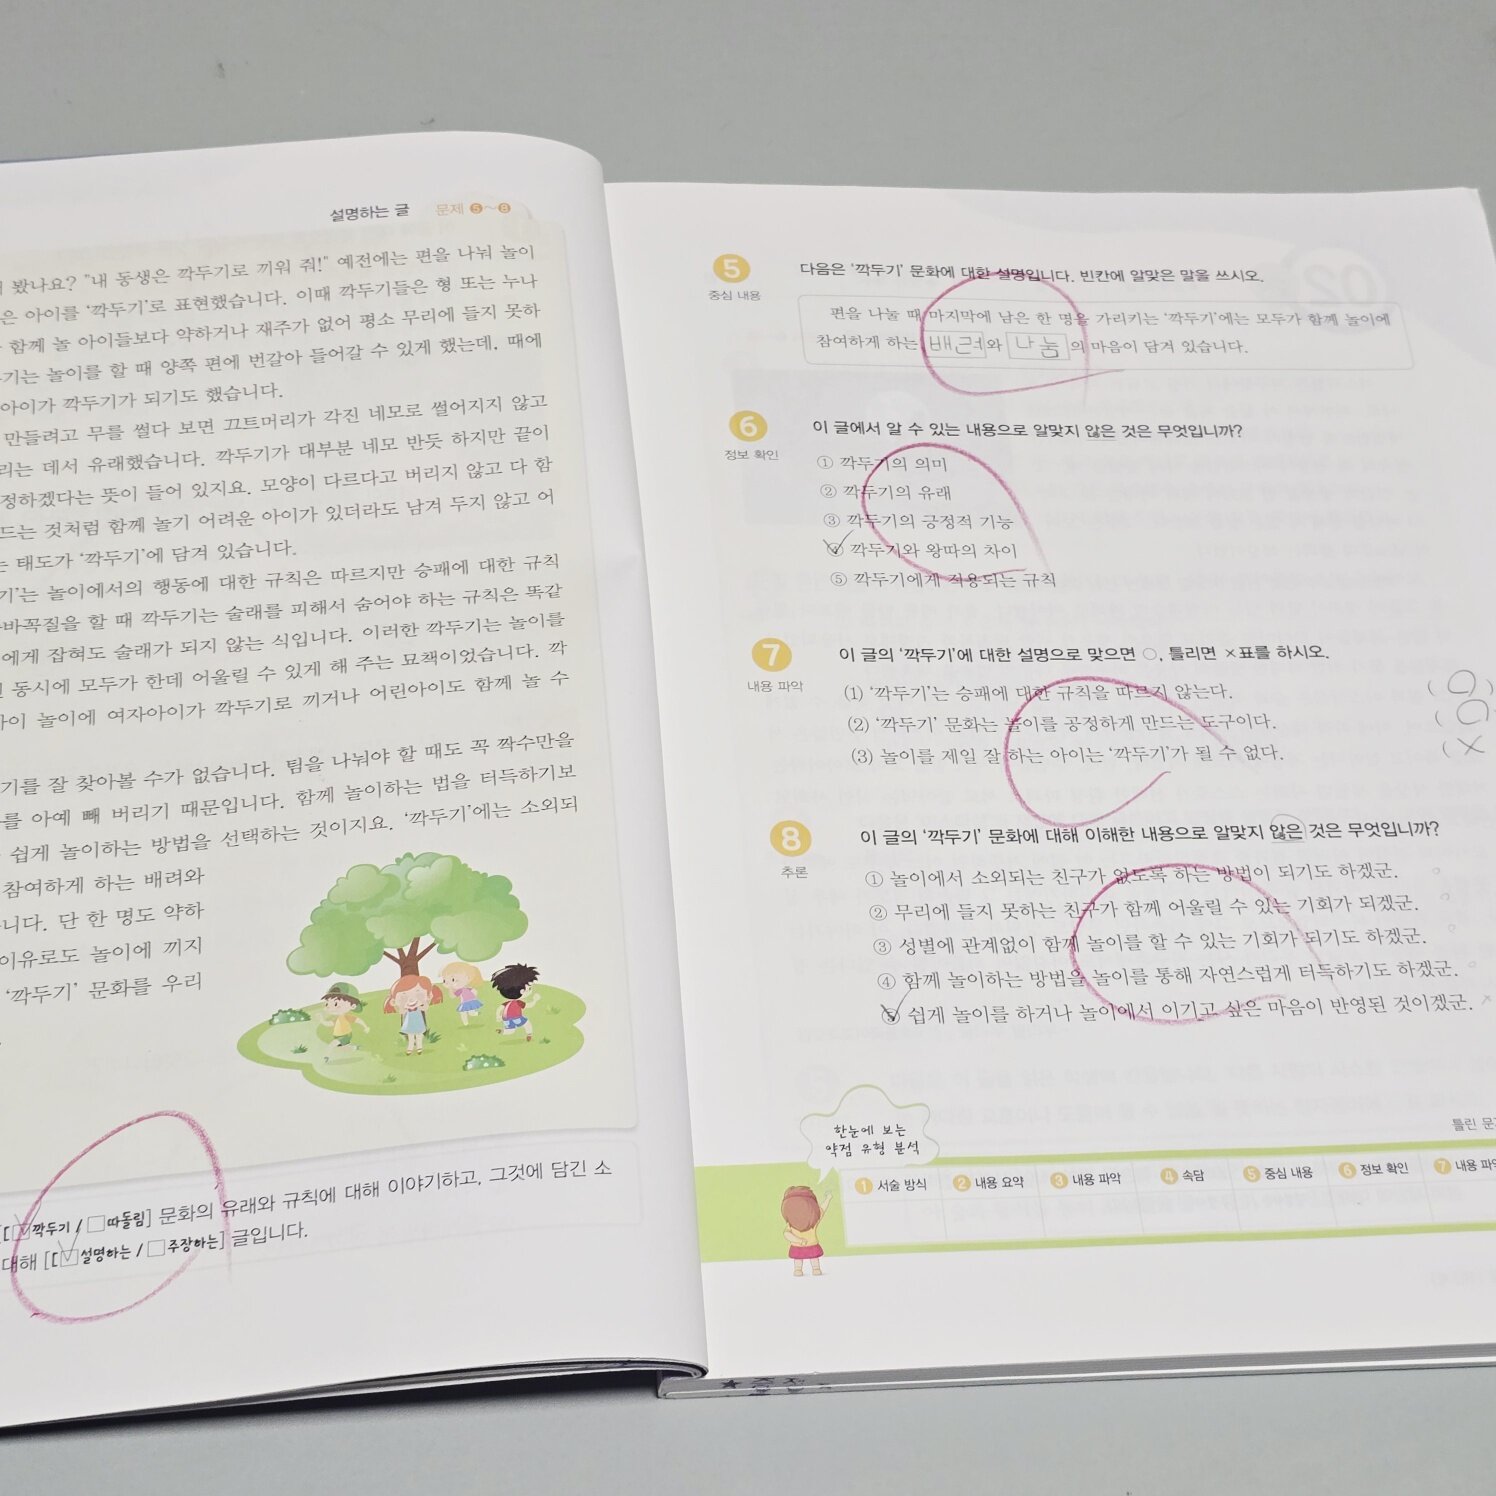 설명하는 글 문제 5~8
봤나요? "내 동생은 깍두기로 끼워 줘!" 예전에는 편을 나눠 놀이
은 아이를 '깍두기'로 표현했습니다. 이때 깍두기들은 형 또는 누나
함께 놀 아이들보다 약하거나 재주가 없어 평소 무리에 들지 못하
기는 놀이를 할 때 양쪽 편에 번갈아 들어갈 수 있게 했는데, 때에
아이가 깍두기가 되기도 했습니다.
만들려고 무를 썰다 보면 끄트머리가 각진 네모로 썰어지지 않고
리는 데서 유래했습니다. 깍두기가 대부분 네모 반듯 하지만 끝이
정하겠다는 뜻이 들어 있지요. 모양이 다르다고 버리지 않고 다 함
드는 것처럼 함께 놀기 어려운 아이가 있더라도 남겨 두지 않고 어
는 태도가 '깍두기'에 담겨 있습니다.
기'는 놀이에서의 행동에 대한 규칙은 따르지만 승패에 대한 규칙
바꼭질을 할 때 깍두기는 술래를 피해서 숨어야 하는 규칙은 똑같
에게 잡혀도 술래가 되지 않는 식입니다. 이러한 깍두기는 놀이를
동시에 모두가 한데 어울릴 수 있게 해 주는 묘책이었습니다. 깍
아이 놀이에 여자아이가 깍두기로 끼거나 어린아이도 함께 놀 수
기를 잘 찾아볼 수가 없습니다. 팀을 나눠야 할 때도 꼭 짝수만을
를 아예 빼 버리기 때문입니다. 함께 놀이하는 법을 터득하기보
쉽게 놀이하는 방법을 선택하는 것이지요. '깍두기'에는 소외되
참여하게 하는 배려와
니다. 단 한 명도 약하
이유로도 놀이에 끼지
'깍두기' 문화를 우리
[☑깍두기 / □따돌림] 문화의 유래와 규칙에 대해 이야기하고, 그것에 담긴 소
대해 [☑설명하는 / □주장하는] 글입니다.
5 다음은 '깍두기' 문화에 대한 설명입니다. 빈칸에 알맞은 말을 쓰시오.
중심 내용
편을 나눌 때 마지막에 남은 한 명을 가리키는 '깍두기'에는 모두가 함께 놀이에
참여하게 하는 배려와 나눔의 마음이 담겨 있습니다.
6 이 글에서 알 수 있는 내용으로 알맞지 않은 것은 무엇입니까?
정보 확인
① 깍두기의 의미
② 깍두기의 유래
③ 깍두기의 긍정적 기능
④ 깍두기와 왕따의 차이
⑤ 깍두기에게 적용되는 규칙
7 이 글의 '깍두기'에 대한 설명으로 맞으면 ○, 틀리면 ×표를 하시오.
내용 파악
(1) '깍두기'는 승패에 대한 규칙을 따르지 않는다. ( ○ )
(2) '깍두기' 문화는 놀이를 공정하게 만드는 도구이다. ( ○
(3) 놀이를 제일 잘 하는 아이는 '깍두기'가 될 수 없다. ( ×
8 이 글의 '깍두기' 문화에 대해 이해한 내용으로 알맞지 않은 것은 무엇입니까?
추론
① 놀이에서 소외되는 친구가 없도록 하는 방법이 되기도 하겠군.
② 무리에 들지 못하는 친구가 함께 어울릴 수 있는 기회가 되겠군.
③ 성별에 관계없이 함께 놀이를 할 수 있는 기회가 되기도 하겠군.
④ 함께 놀이하는 방법을 놀이를 통해 자연스럽게 터득하기도 하겠군.
⑤ 쉽게 놀이를 하거나 놀이에서 이기고 싶은 마음이 반영된 것이겠군.
한눈에 보는
약점 유형 분석
틀린 문
1 서술 방식 2 내용 요약 3 내용 파악 4 속담 5 중심 내용 6 정보 확인 7 내용 파악